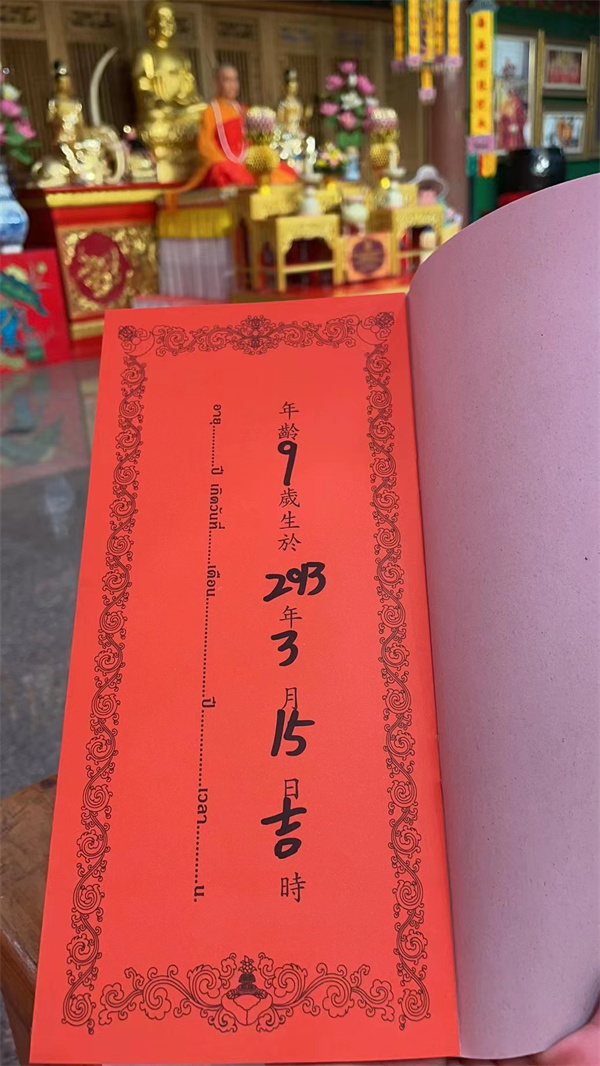 年齡9歲生於2013年3月15日吉時
อายุ............ปี เกิดวันที่............เดือน........................ปี..................เวลา.............น.